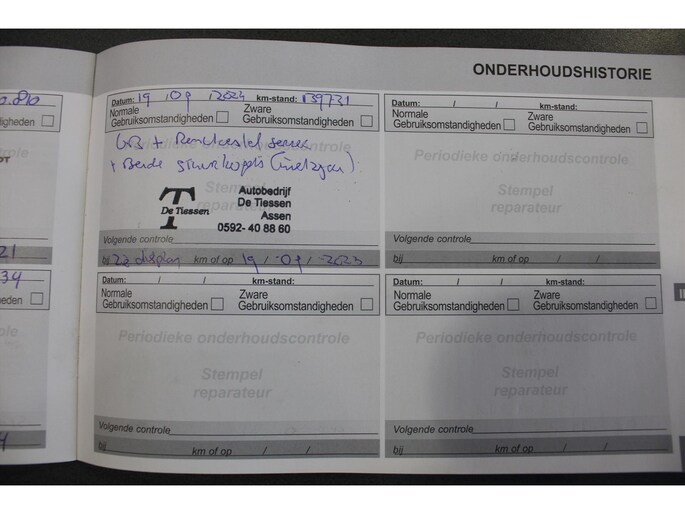 ONDERHOUDSHISTORIE
Datum: 19 / 09 / 2024 km-stand: 139731
Normale Gebruiksomstandigheden Zware Gebruiksomstandigheden
GB +
+ Beide
De Tiessen
Autobedrijf
De Tiessen
Assen
0592- 40 88 60
Volgende controle
bij km of op 19 / 09 / 2023
Datum: / / km-stand:
Normale Gebruiksomstandigheden Zware Gebruiksomstandigheden
Periodieke onderhoudscontrole
Stempel
reparateur
Volgende controle
bij km of op / /
Datum: / / km-stand:
Normale Gebruiksomstandigheden Zware Gebruiksomstandigheden
Periodieke onderhoudscontrole
Stempel
reparateur
Volgende controle
bij km of op / /
Datum: / / km-stand:
Normale Gebruiksomstandigheden Zware Gebruiksomstandigheden
Periodieke onderhoudscontrole
Stempel
reparateur
Volgende controle
bij km of op / /